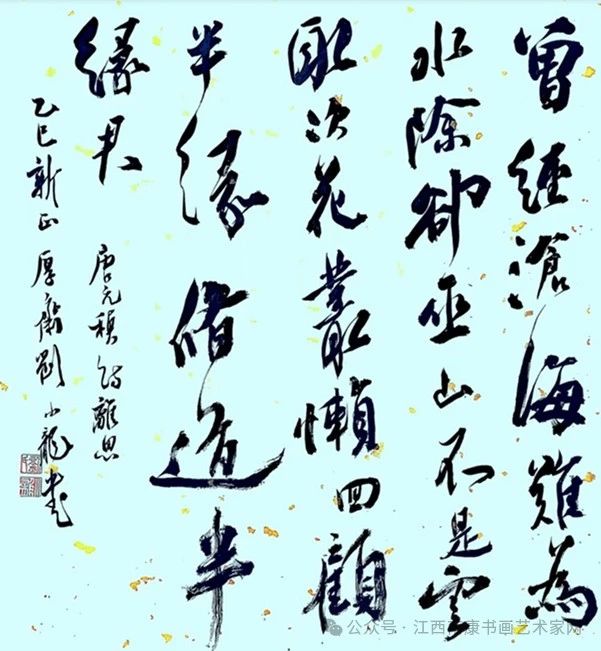 曾經滄海難為
水除卻巫山不是雲
取次花叢懶回顧
半緣脩道半
緣君
唐元稹詩離思
乙巳新正 厚 劉小龍書
公众号·江西南康书画艺术家网